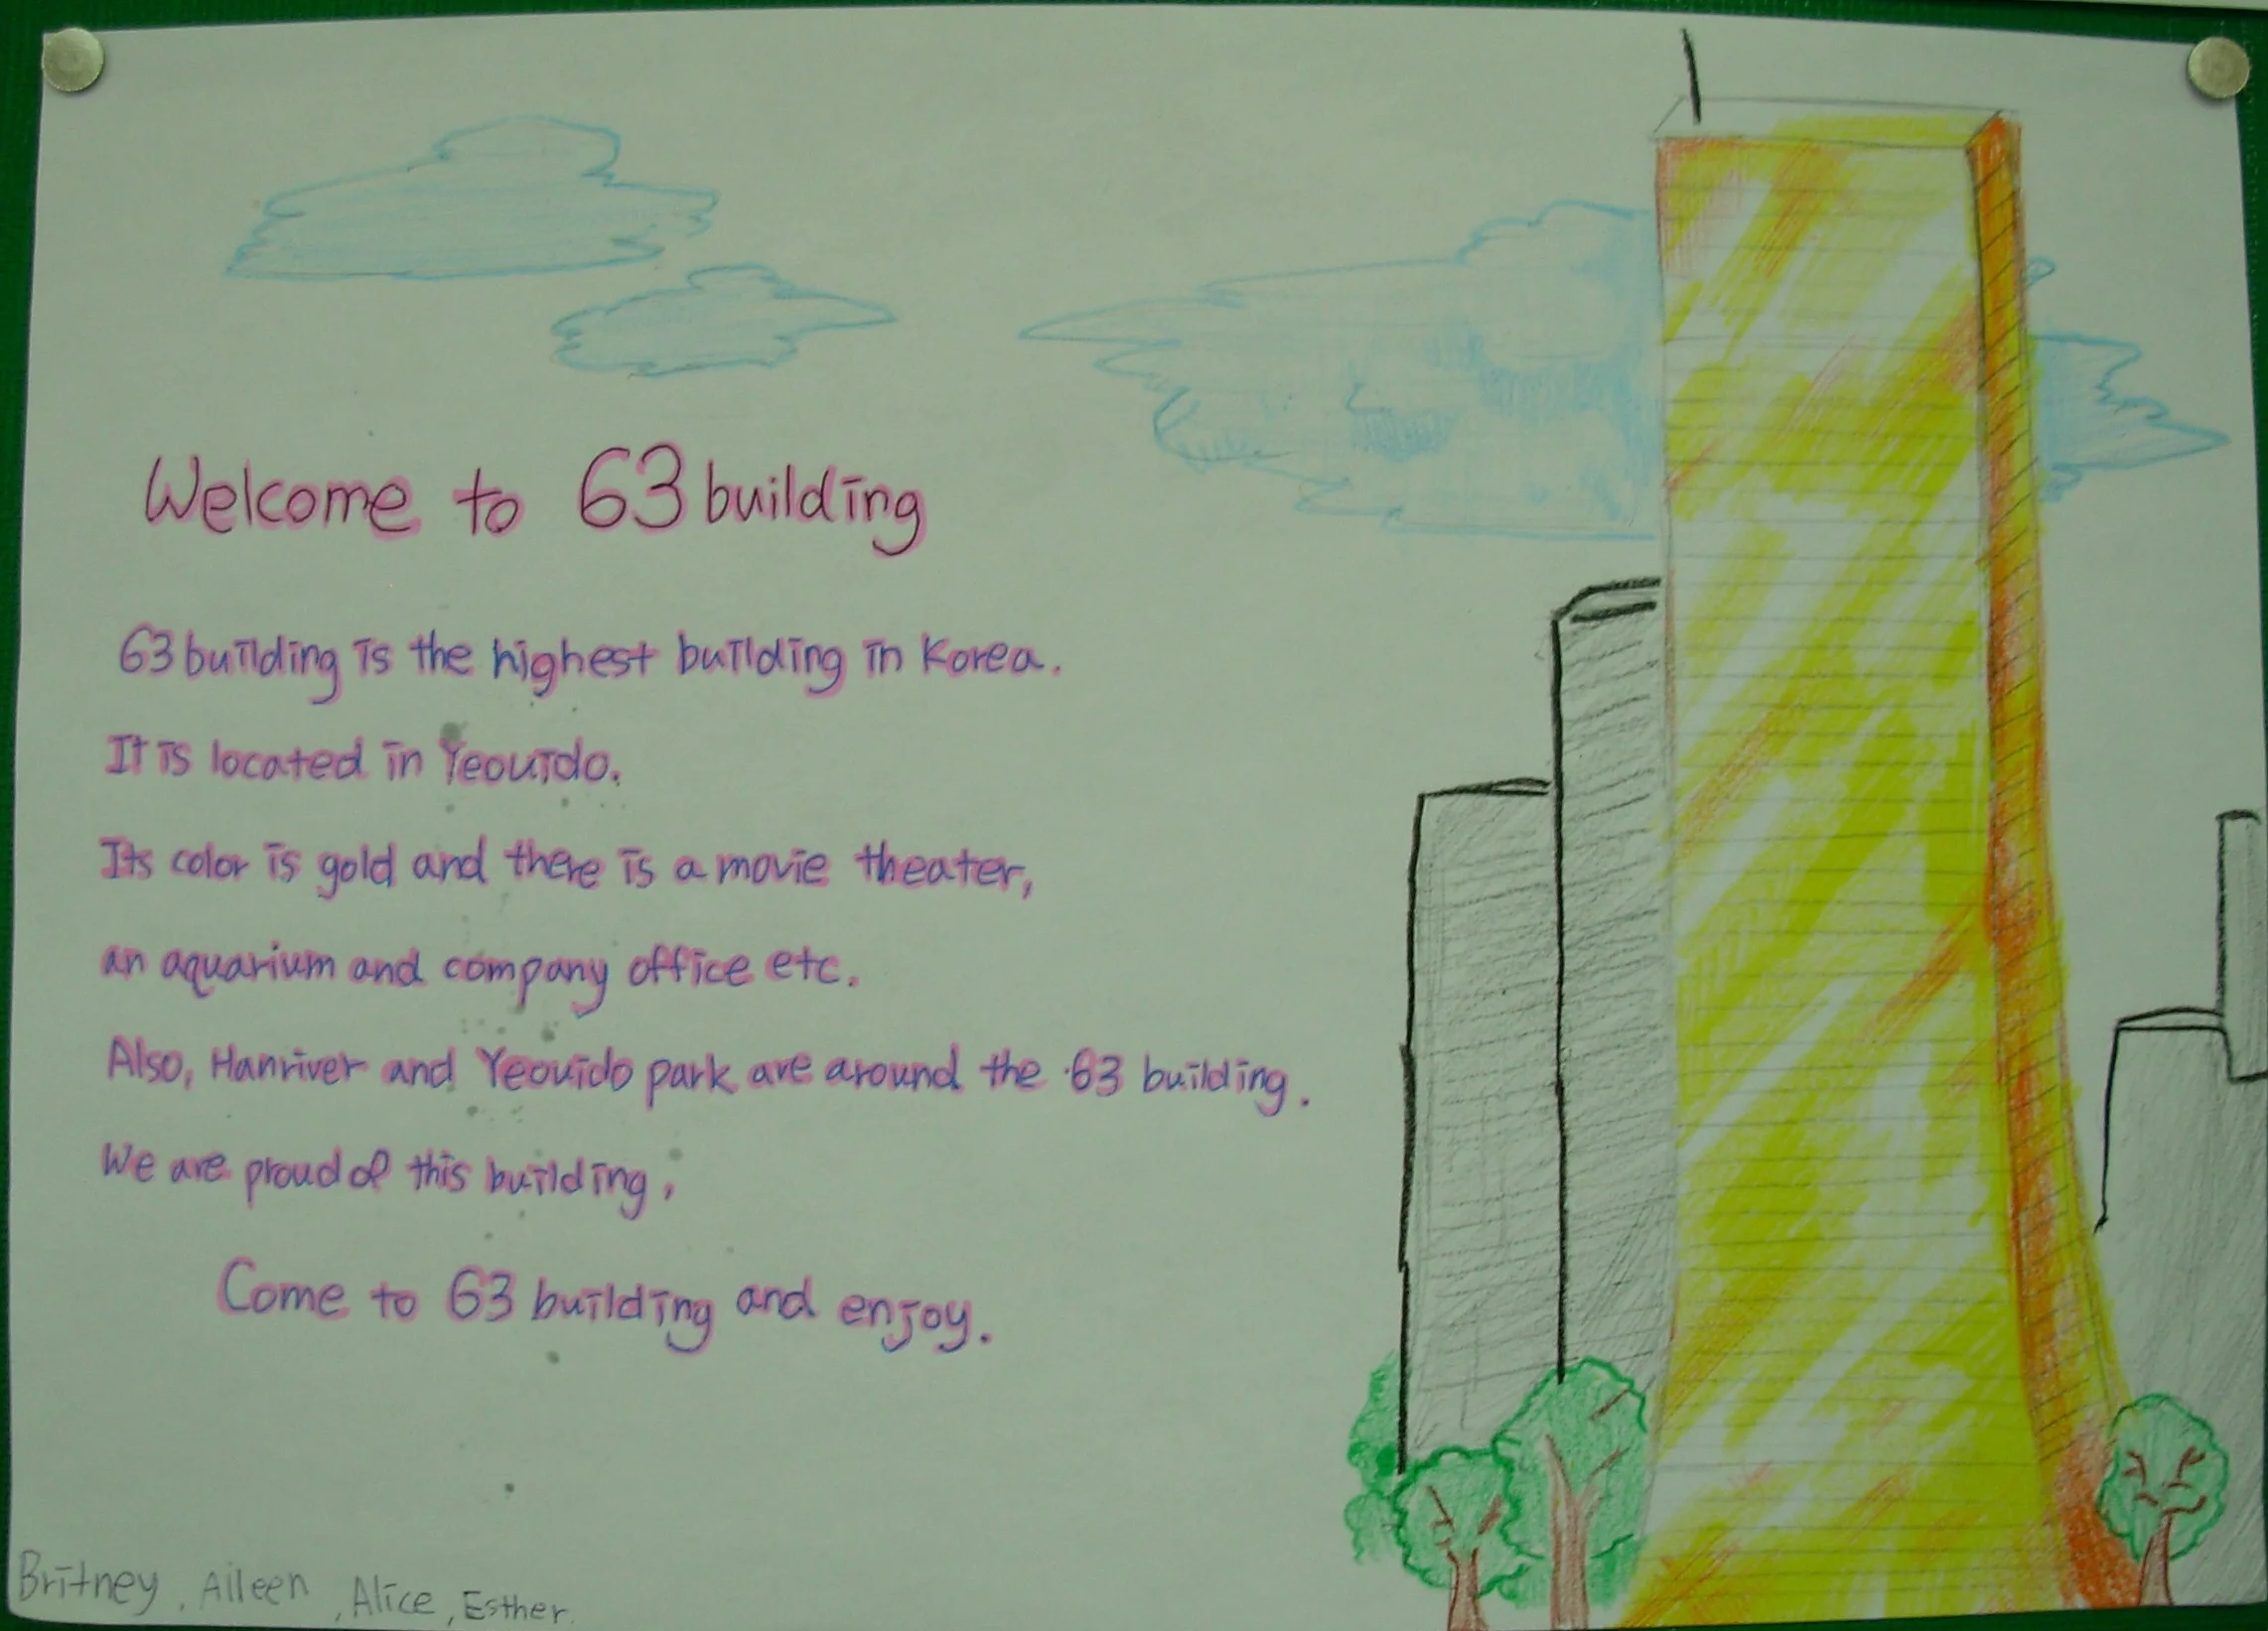 Welcome to 63 building
63 building is the highest building in Korea.
It is located in Yeouido.
Its color is gold and there is a movie theater,
an aquarium and company office etc.
Also, Hanriver and Yeouido park are around the 63 building.
We are proud of this building.
Come to 63 building and enjoy.
Britney, Aileen, Alice, Esther.